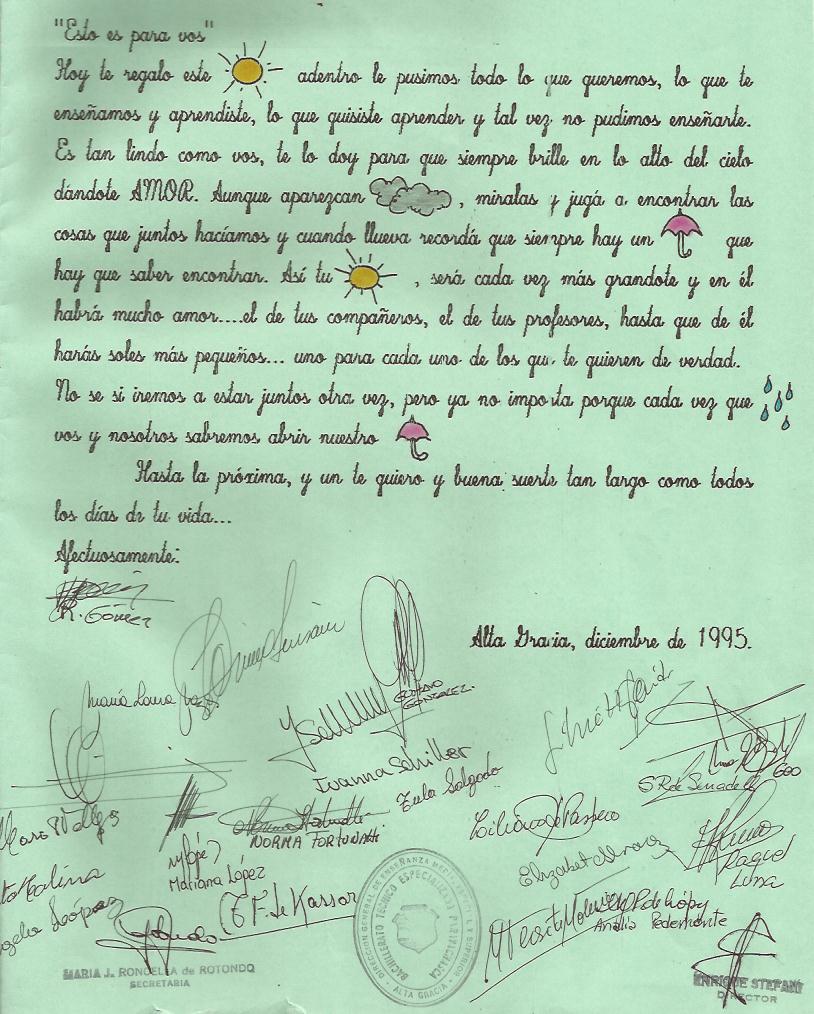 "Esto es para vos"
Hoy te regalo este adentro le pusimos todo lo que queremos, lo que te
enseñamos y aprendiste, lo que quisiste aprender y tal vez no pudimos enseñarte.
Es tan lindo como vos, te lo doy para que siempre brille en lo alto del cielo
dándote AMOR. Aunque aparezcan , miralas y jugá a encontrar las
cosas que juntos hacíamos y cuando llueva recordá que siempre hay un que
hay que saber encontrar. Así tu , será cada vez más grandote y en él
habrá mucho amor....el de tus compañeros, el de tus profesores, hasta que de él
harás soles más pequeños... uno para cada uno de los que te quieren de verdad.
No se si iremos a estar juntos otra vez, pero ya no importa porque cada vez que
vos y nosotros sabremos abrir nuestro
Hasta la próxima, y un te quiero y buena suerte tan largo como todos
los días de tu vida...
Afectuosamente:
R. Gómez
Alta Gracia, diciembre de 1995.
María Laura
GUSTAVO
GONZALEZ.
Ivanna Schiller
Zula Salgado
S R de Senadell
NORMA FORTUNATTI
Mariana López
Elizabet
Raquel
Luna
López
T F. de Kassar
Analía Pedemonte
DIRECCION GENERAL DE ENSEÑANZA MEDIA, ESPECIAL Y SUPERIOR
BACHILLERATO TECNICO ESPECIALIZADO
ALTA GRACIA
MARIA J. RONCELLA de ROTONDO
SECRETARIA
ENRIQUE STEFANI
DIRECTOR